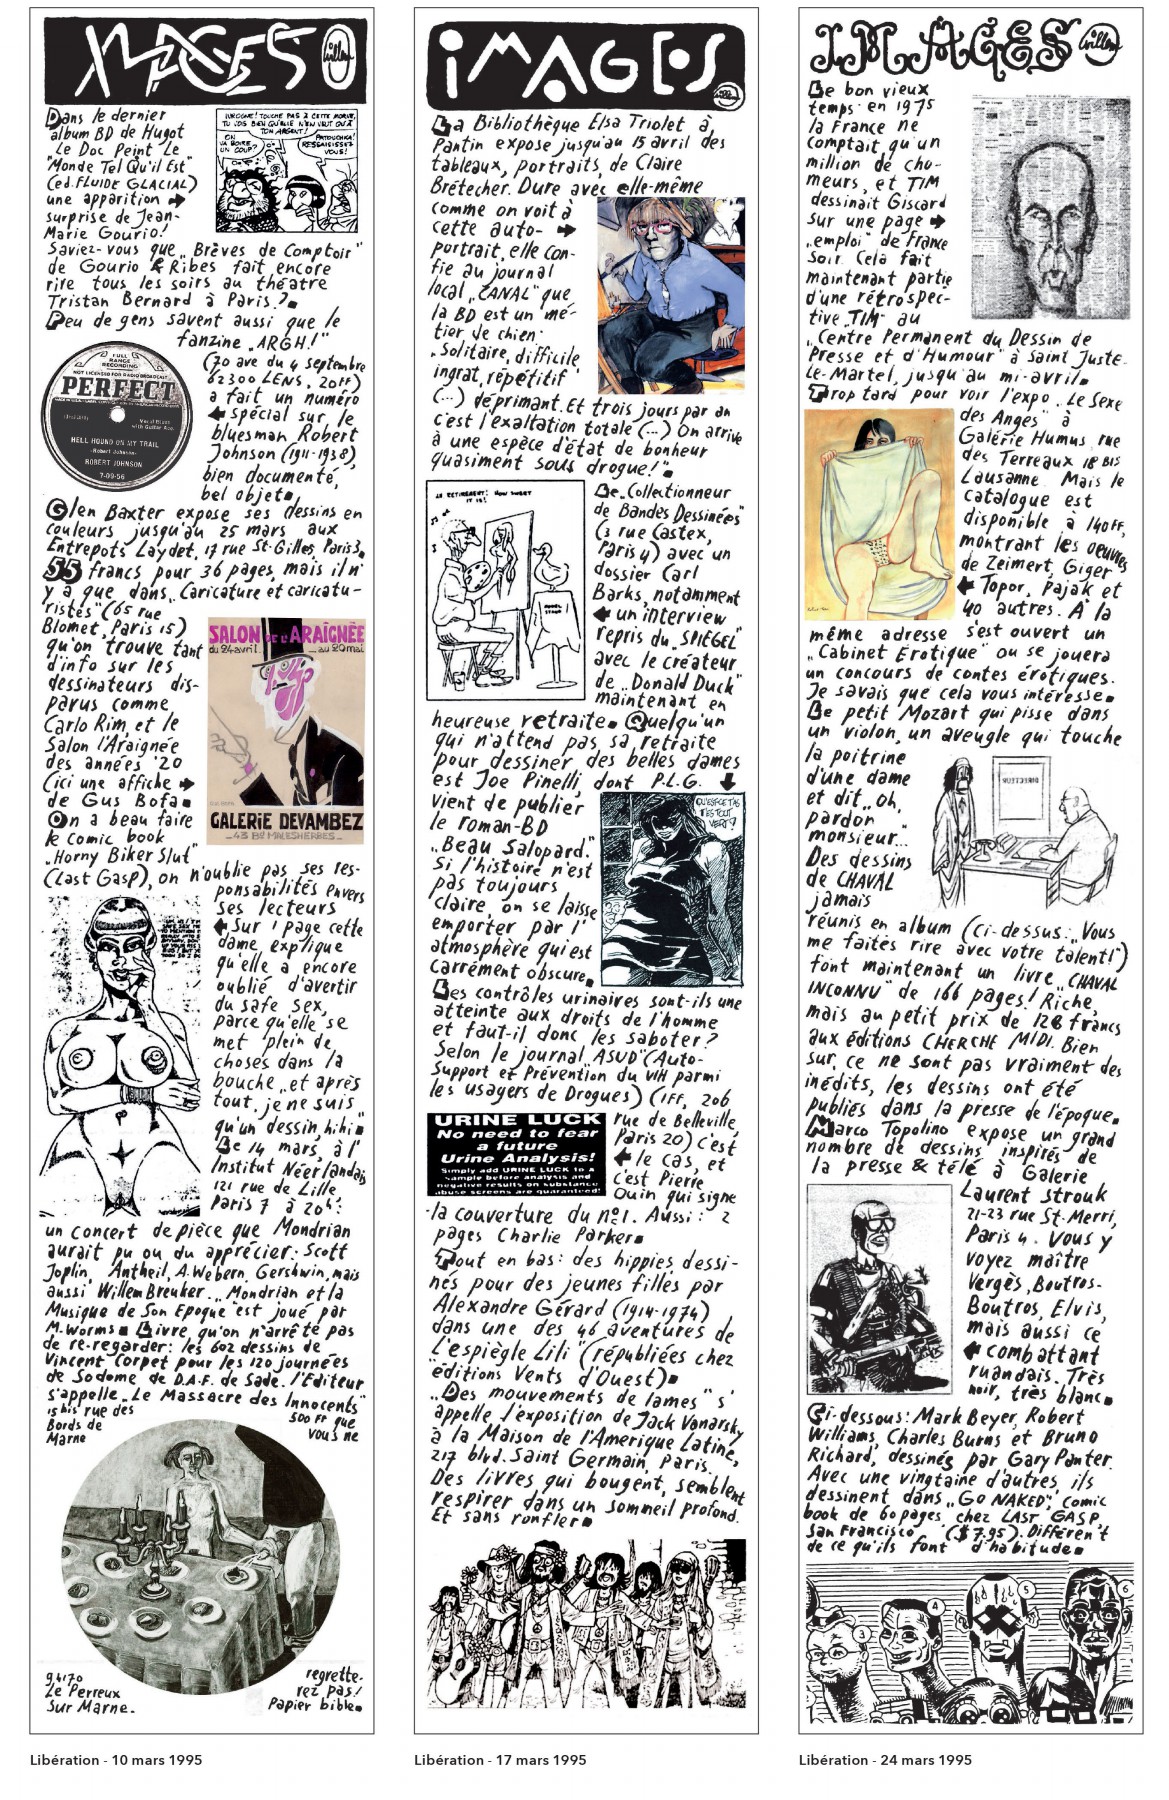 IMAGES
Willem
Dans le dernier
album BD de Hugot
Le Doc Peint Le
"Monde Tel Qu'il Est"
(ed. FLUIDE GLACIAL)
une apparition
surprise de Jean-
Marie Gourio!
IVROGNE! TOUCHE PAS À CETTE MORUE,
TU VOIS BIEN QU'ELLE N'EN VEUT QU'À
TON ARGENT!
ON
VA BOIRE
UN COUP?
PATOUCHKA!
RESSAISISSEZ
VOUS!
Saviez-vous que „Brèves de Comptoir"
de Gourio & Ribes fait encore
rire tous les soirs au théatre
Tristan Bernard à Paris?
Peu de gens savent aussi que le
fanzine „ARGH!"
(70 ave du 4 septembre
62300 LENS, 20FF)
a fait un numéro
spécial sur le
bluesman Robert
Johnson (1911-1938),
bien documenté,
bel objet
FULL
RANGE
RECORDING
NOT LICENSED FOR RADIO BROADCAST
PERFECT
Vocal Blues
with Guitar Acc.
HELL HOUND ON MY TRAIL
-Robert Johnson-
ROBERT JOHNSON
7-09-56
Glen Baxter expose ses dessins en
couleurs jusqu'au 25 mars aux
Entrepots Laydet, 17 rue St-Gilles, Paris 3.
55 francs pour 36 pages, mais il n'
y a que dans „Caricature et caricatu-
ristes" (65 rue
Blomet, Paris 15)
qu'on trouve tant
d'info sur les
dessinateurs dis-
parus comme
Carlo Rim, et le
Salon l'Araignée
des années '20
(ici une affiche
de Gus Bofa
SALON DE L'ARAIGNÉE
du 24 avril. _au 20 mai
GALERIE DEVAMBEZ
-43 Bd MALESHERBES-
On a beau faire
le comic book
„Horny Biker Slut"
(Last Gasp), on n'oublie pas ses res-
ponsabilités envers
ses lecteurs
Sur 1 page cette
dame explique
qu'elle a encore
oublié d'avertir
du safe sex,
parce qu'elle se
met „plein de
choses dans la
bouche „et après
tout, je ne suis
qu'un dessin, hihi"
Le 14 mars, à l'
Institut Néerlandais
121 rue de Lille
Paris 7 à 20h:
un concert de pièce que Mondrian
aurait pu ou du apprécier: Scott
Joplin, Antheil, A. Webern, Gershwin, mais
aussi Willem Breuker. „Mondrian et la
Musique de Son Epoque" est joué par
M. Worms. Livre, qu'on n'arrête pas
de re-regarder: les 602 dessins de
Vincent Corpet pour les 120 journées
de Sodome de D.A.F. de Sade. l'Editeur
s'appelle „Le Massacre des Innocents"
15 bis rue des
Bords de
Marne
500 FF que
vous ne
94170
Le Perreux
Sur Marne.
regrette-
rez pas!
Papier bible
Libération - 10 mars 1995
iMAGES
La Bibliothèque Elsa Triolet à
Pantin expose jusqu'au 15 avril des
tableaux, portraits, de Claire
Brétecher. Dure avec elle-même
comme on voit à
cette auto-
portrait, elle con-
fie au journal
local „CANAL" que
la BD est un mé-
tier de chien:
„Solitaire, difficile
ingrat, répétitif
(...) déprimant. Et trois jours par an
c'est l'exaltation totale (...) On arrive
à une espèce d'état de bonheur
quasiment sous drogue!"
AH RETIREMENT! HOW SWEET
IT IS!
MODEL
STAND
Le „Collectionneur
de Bandes Dessinées"
(3 rue Castex,
Paris 4) avec un
dossier Carl
Barks, notamment
un interview
repris du „SPIEGEL"
avec le créateur
de „Donald Duck"
maintenant en
heureuse retraite. Quelqu'un
qui n'attend pas sa retraite
pour dessiner des belles dames
est Joe Pinelli, dont P.L.G.
vient de publier
le roman-BD
„Beau Salopard."
Si l'histoire n'est
pas toujours
claire, on se laisse
emporter par l'
atmosphère qui est
carrément obscure.
QU'EST-CE T'AS
T'ES TOUT
VERT?
Les contrôles urinaires sont-ils une
atteinte aux droits de l'homme
et faut-il donc les saboter?
Selon le journal „ASUD" (Auto-
Support et Prévention du VIH parmi
les usagers de Drogues) (1FF, 206
rue de Belleville,
Paris 20) c'est
le cas, et
c'est Pierre
Ouin qui signe
URINE LUCK
No need to fear
a future
Urine Analysis!
Simply add URINE LUCK to a
sample before analysis and
negative results on substance
abuse screens are guaranteed!
la couverture du n°1. Aussi: 2
pages Charlie Parker
Tout en bas: des hippies dessi-
nés pour des jeunes filles par
Alexandre Gérard (1914-1974)
dans une des 46 aventures de
„L'espiègle Lili" (républiées chez
éditions Vents d'Ouest)
„Des mouvements de lames" s'
appelle l'exposition de Jack Vanarsky
à la Maison de l'Amerique Latine,
217 blvd. Saint Germain, Paris.
Des livres qui bougent, semblent
respirer dans un sommeil profond.
Et sans ronfler
Libération - 17 mars 1995
IMAGES
Willem
Le bon vieux
temps: en 1975
la France ne
comptait qu'un
million de chô-
meurs, et TIM
dessinait Giscard
sur une page
„emploi" de France
Soir. Cela fait
maintenant partie
d'une rétrospec-
tive „TIM" au
„Centre Permanent du Dessin de
Presse et d'Humour" à Saint Juste-
Le-Martel, jusqu'au mi-avril.
Trop tard pour voir l'expo „Le Sexe
des Anges" à
Galerie Humus, rue
des Terreaux 18 BIS
Lausanne. Mais le
catalogue est
disponible à 140FF,
montrant les oeuvres
de Zeimert, Giger
Topor, Pajak et
40 autres. À la
même adresse s'est ouvert un
„Cabinet Erotique" ou se jouera
un concours de contes érotiques.
Je savais que cela vous intéresse.
Le petit Mozart qui pisse dans
un violon, un aveugle qui touche
la poitrine
d'une dame
et dit „Oh,
pardon
monsieur"...
Des dessins
de CHAVAL
jamais
DIRECTEUR
réunis en album (Ci-dessus: „Vous
me faites rire avec votre talent!")
font maintenant un livre „CHAVAL
INCONNU" de 166 pages! Riche,
mais au petit prix de 128 francs
aux éditions CHERCHE MIDI. Bien
sur, ce ne sont pas vraiment des
inédits, les dessins ont été
publiés dans la presse de l'époque.
Marco Topolino expose un grand
nombre de dessins inspirés de
la presse & télé à Galerie
Laurent Strouk
21-23 rue St-Merri,
Paris 4. Vous y
voyez maître
Vergès, Boutros-
Boutros, Elvis,
mais aussi ce
combattant
ruandais. Très
noir, très blanc
Ci-dessous: Mark Beyer, Robert
Williams, Charles Burns et Bruno
Richard, dessinés par Gary Panter.
Avec une vingtaine d'autres, ils
dessinent dans „GO NAKED", comic
book de 60 pages chez LAST GASP,
San Francisco ($7.95). Différent
de ce qu'ils font d'habitude
3
4
5
6
Libération - 24 mars 1995